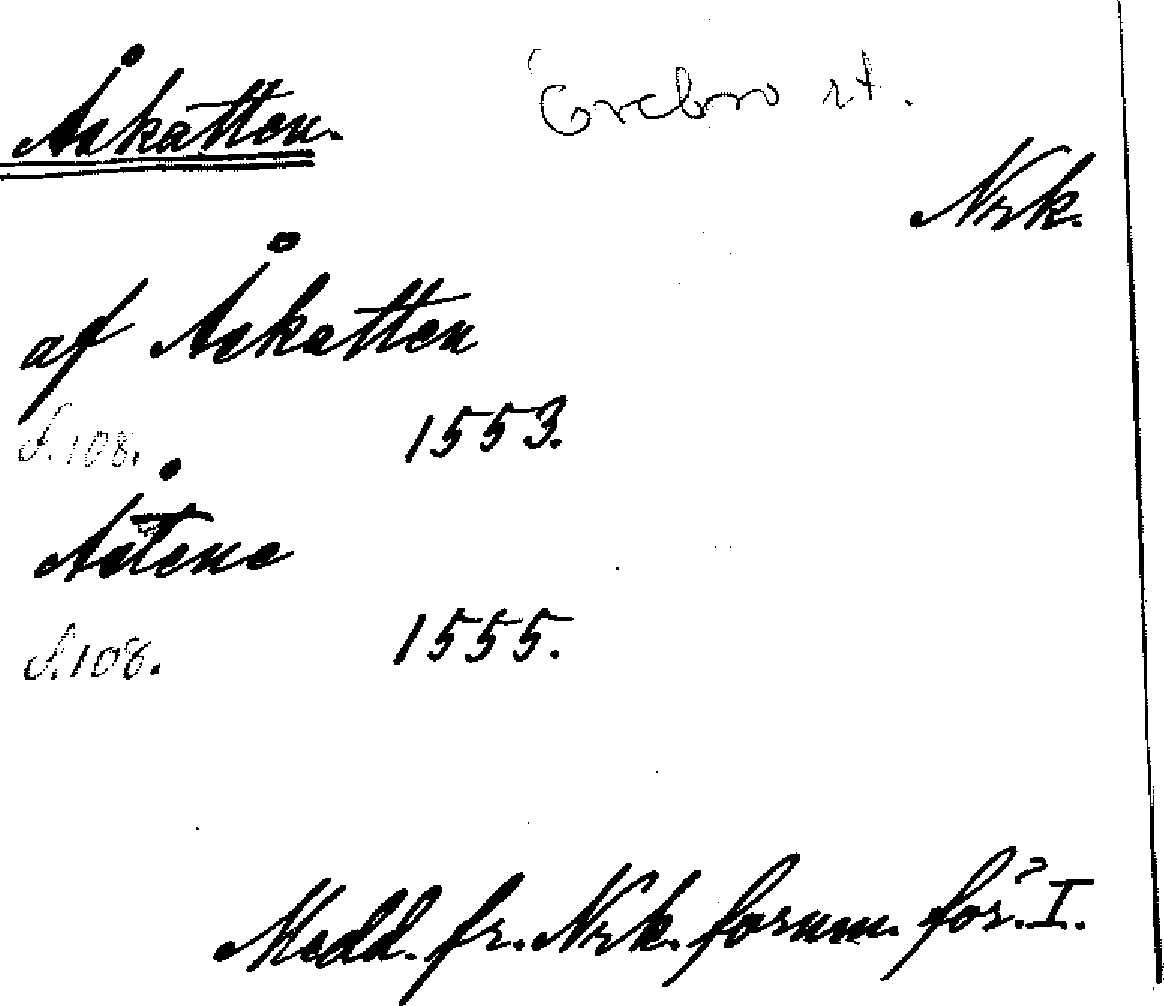 Åskåtten. Örebro rt.
Nrk.
af Åskatten
S. 108. 1553.
Åstene
S. 108. 1555.
Medd. fr. Nrk. fornm. för. I.